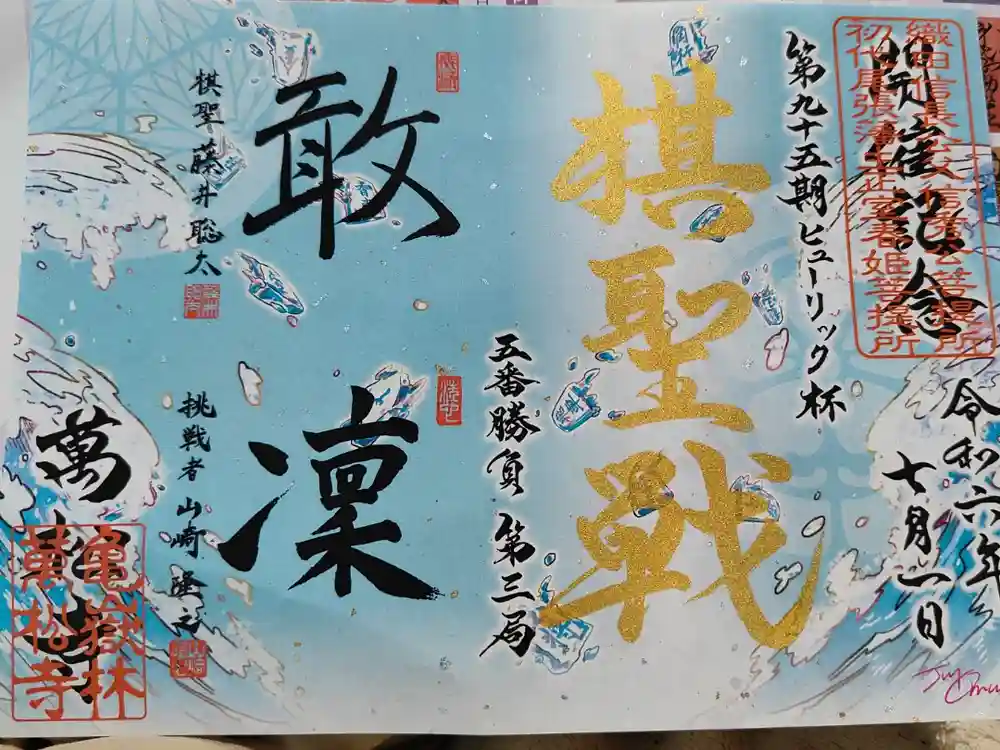 開催記念
織田信長公父信秀公菩提所
初代尾張藩主正室春姫菩提所
令和六年
七月一日
第九十五期ヒューリック杯
棋聖戦
五番勝負 第三局
敢
棋聖 藤井聡太
凜
挑戦者 山崎隆之
萬松寺
亀嶽林
萬松寺